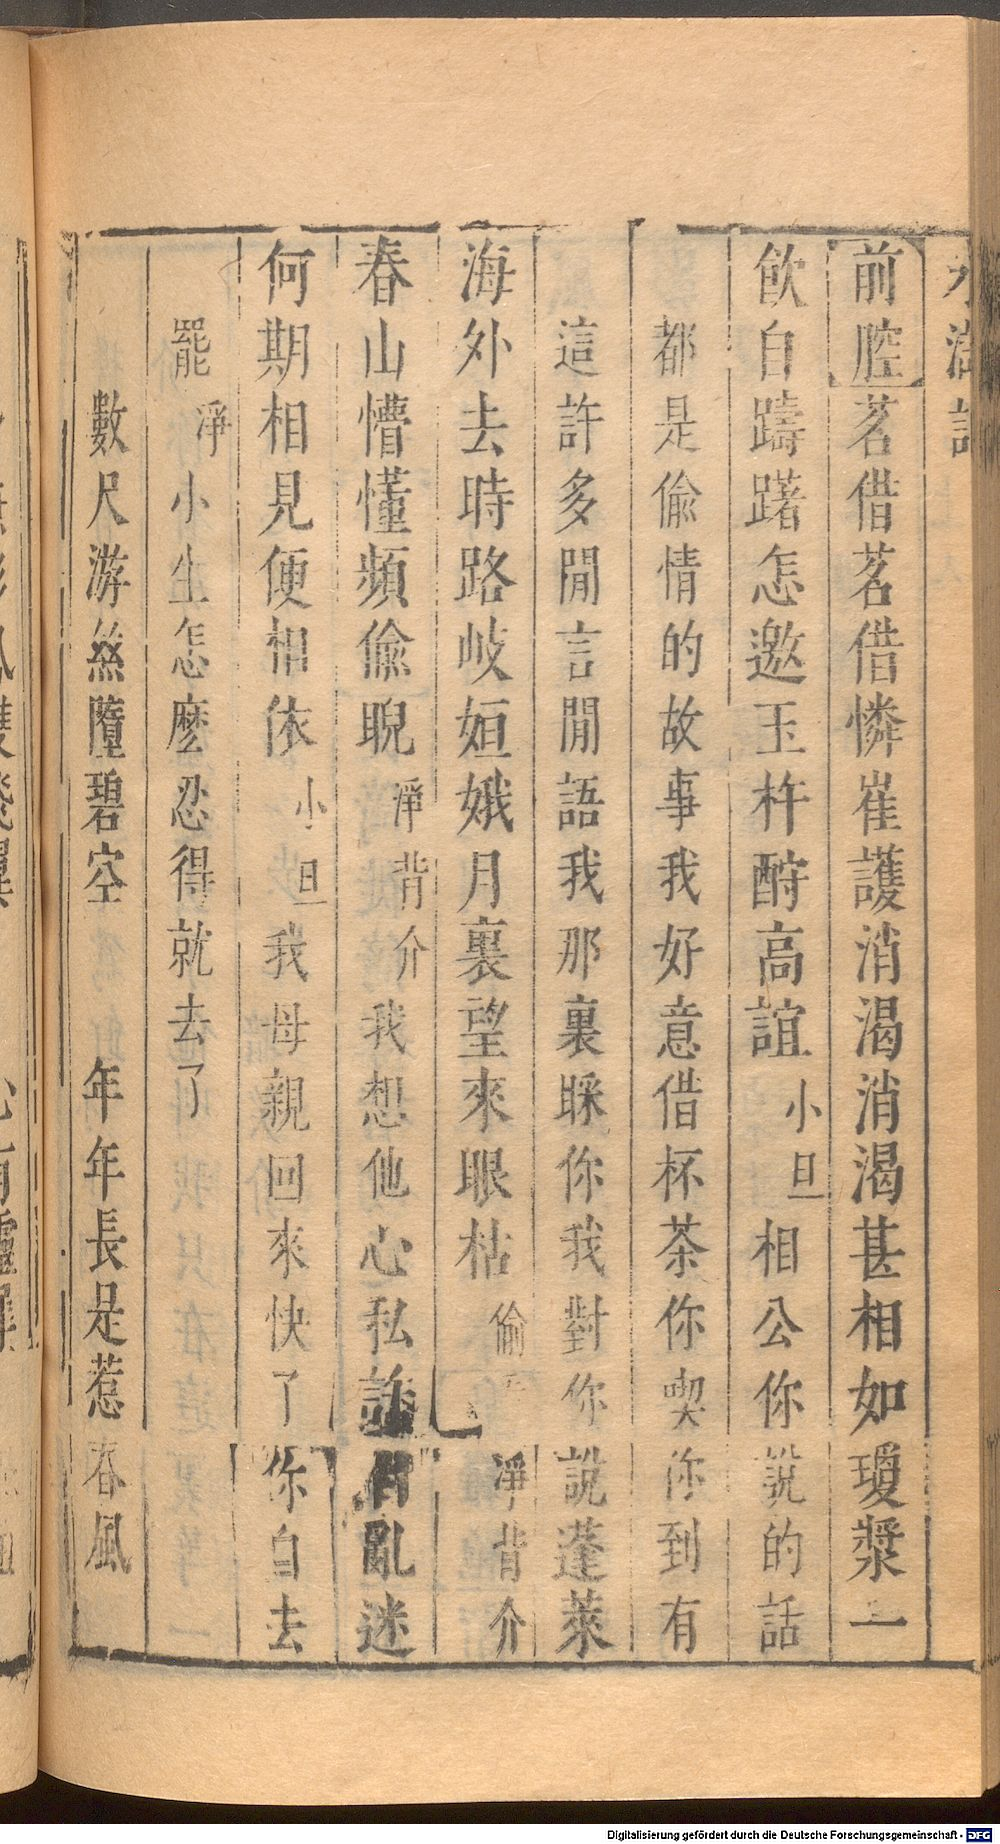 水滸記
前腔茗借茗借憐崔護消渴消渴甚相如瓊漿一
飲自躊躇怎邀玉杵酧高誼小旦相公你說的話
都是偸情的故事我好意借杯茶你喫你到有
這許多閒言閒語我那裏睬你我對你說蓬萊
海外去時路岐姮娥月裏望來眼枯偷 淨背介
春山懵懂頻偸睨淨背介我想他心私訴 亂迷
何期相見便相依小旦我母親回來快了你自去
罷淨小生怎麽忍得就去了
數尺游絲墮碧空 年年長是惹春風
Digitalisierung gefördert durch die Deutsche Forschungsgemeinschaft - DFG